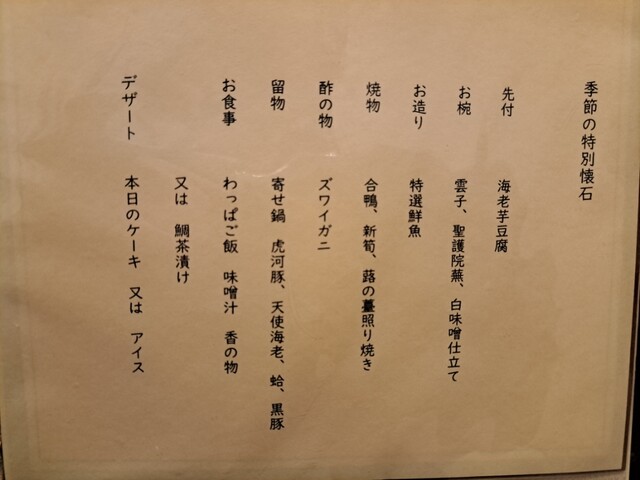 季節の特別懐石
先付　海老芋豆腐
お椀　雲子、聖護院蕪、白味噌仕立て
お造り　特選鮮魚
焼物　合鴨、新筍、蕗の薹照り焼き
酢の物　ズワイガニ
留物　寄せ鍋　虎河豚、天使海老、蛤、黒豚
お食事　わっぱご飯　味噌汁　香の物
又は　鯛茶漬け
デザート　本日のケーキ　又は　アイス